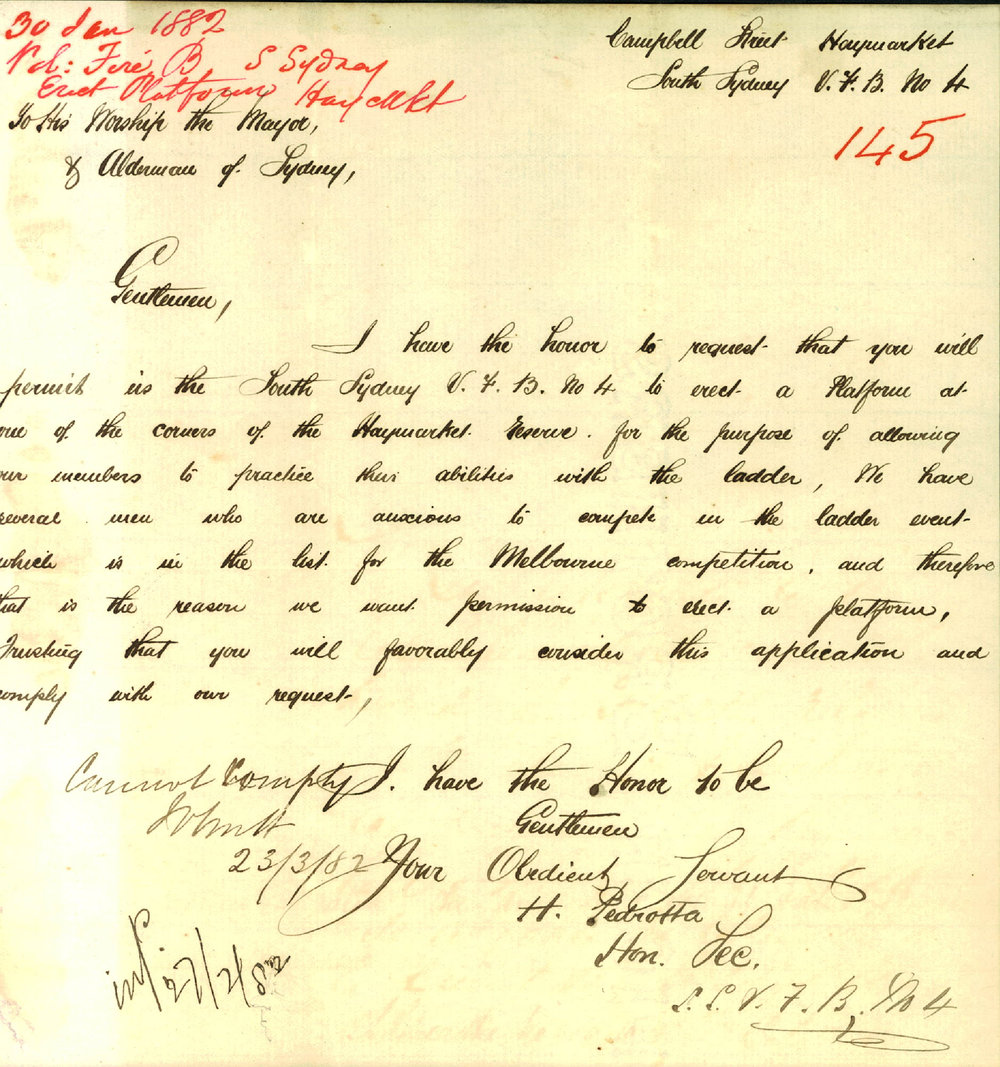 30 Jan 1882
Vol: Fire B. S Sydney
Erect Platform HayMkt
Campbell Street Haymarket
South Sydney V. F. B. No 4
145
To His Worship the Mayor,
& Alderman of Sydney,
Gentlemen,
I have the honor to request that you will
permit us the South Sydney V. F. B. No 4 to erect a Platform at
one of the corners of the Haymarket Reserve. for the purpose of allowing
our members to practice their abilities with the ladder, We have
several men who are auxcious to compete in the ladder event
which is in the list for the Melbourne competition, and therefore
that is the reason we want permission to erect a platform,
Trusting that you will favorably consider this application and
comply with our request,
I. have the Honor to be
Gentlemen
Your Obedient Servant
H. Pedrotta
Hon. Sec.
S. S. V. F. B. No 4
Cannot Comply
23/3/82
27/2/82